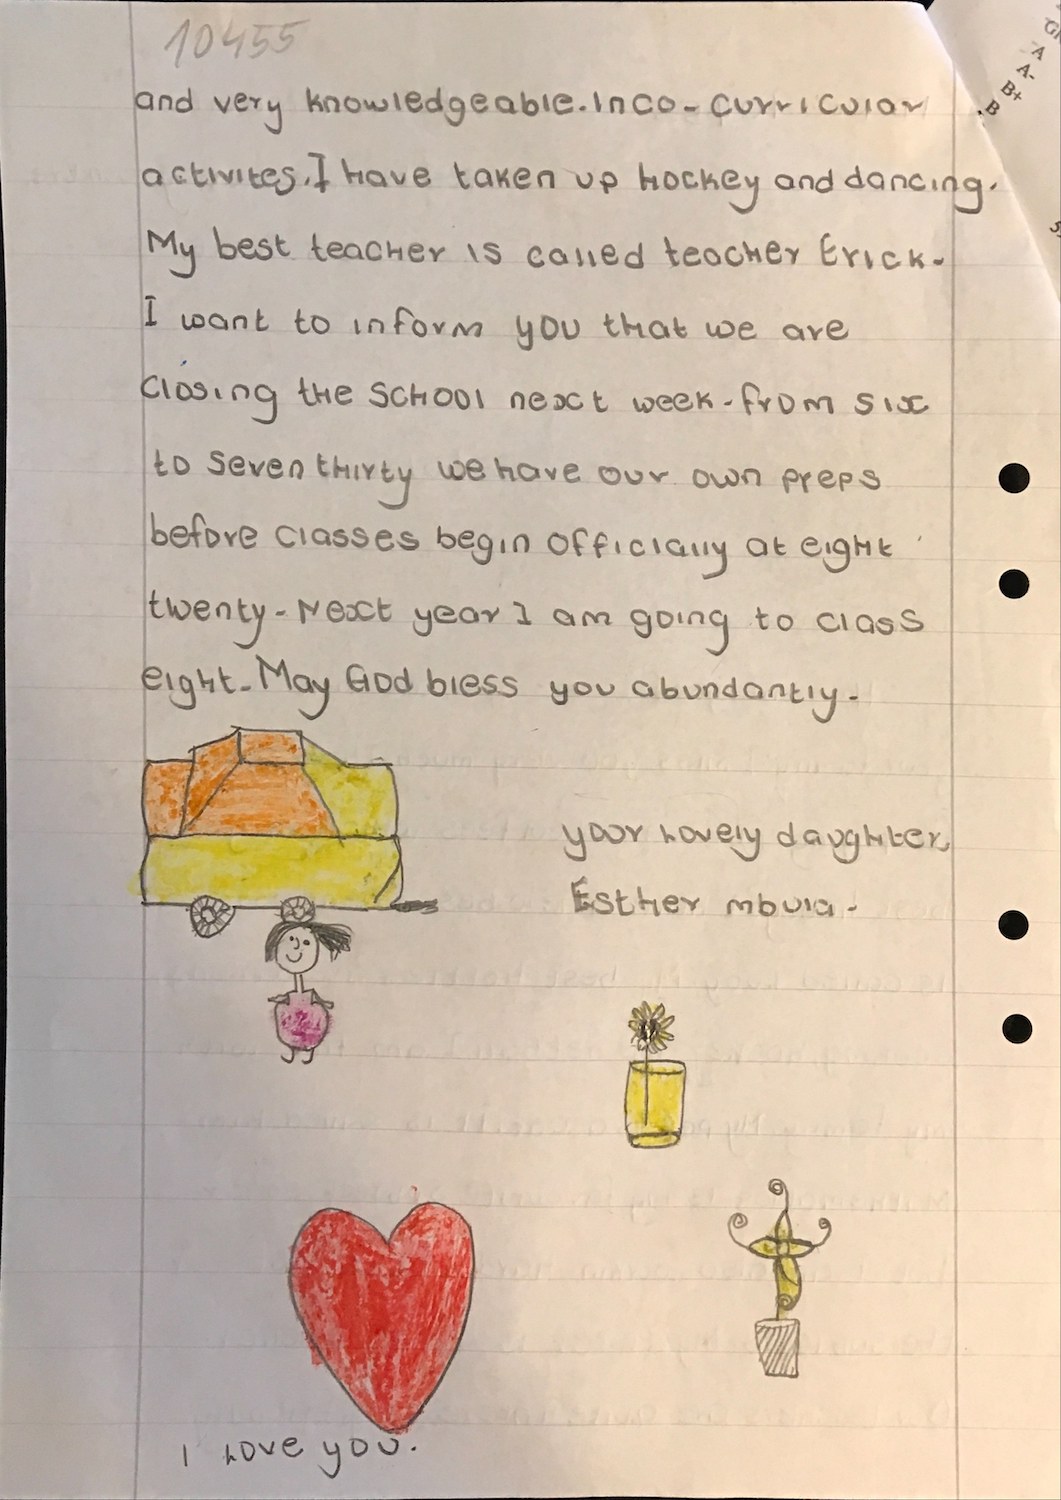 10455
and very knowledgeable. Inco-curricular
activites, I have taken up hockey and dancing.
My best teacher is called teacher Erick.
I want to inform you that we are
closing the school next week. from six
to seven thirty we have our own preps
before classes begin officially at eight
twenty. Next year I am going to class
eight. May God bless you abundantly.
your lovely daughter,
Esther mbula.
I Love you.
A
A-
B+
B